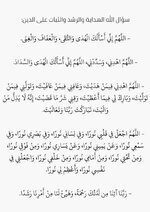 سؤال الله الهداية والرشد والثبات على الدين:
- اللَّهُمَّ إِنِّي أَسْأَلُكَ الْهُدَى وَالتُّقَى، وَالْعَفَافَ وَالْغِنَى.
- اللَّهُمَّ اهْدِنِي وَسَدِّدْنِي، اللَّهُمَّ إِنِّي أَسْأَلُكَ الْهُدَى وَالسَّدَادَ.
- اللَّهُمَّ اهْدِنِي فِيمَنْ هَدَيْتَ، وَعَافِنِي فِيمَنْ عَافَيْتَ، وَتَوَلَّنِي فِيمَنْ
تَوَلَّيْتَ، وَبَارِكْ لِي فِيمَا أَعْطَيْتَ، وَقِنِي شَرَّ مَا قَضَيْتَ، إِنَّهُ لَا يَذِلُّ مَنْ
وَالَيْتَ، تَبَارَكْتَ رَبَّنَا وَتَعَالَيْتَ.
- اللَّهُمَّ اجْعَلْ فِي قَلْبِي نُورًا، وَفِي لِسَانِي نُورًا، وَفِي بَصَرِي نُورًا، وَفِي
سَمْعِي نُورًا، وَعَنْ يَمِينِي نُورًا، وَعَنْ يَسَارِي نُورًا، وَمِنْ فَوْقِي نُورًا،
وَمِنْ تَحْتِي نُورًا، وَمِنْ أَمَامِي نُورًا، وَمِنْ خَلْفِي نُورًا، وَاجْعَلْ لِي فِي
نَفْسِي نُورًا، وَأَعْظِمْ لِي نُورًا.
- رَبَّنَا آتِنَا مِن لَّدُنكَ رَحْمَةً وَهَيِّئْ لَنَا مِنْ أَمْرِنَا رَشَدًا.